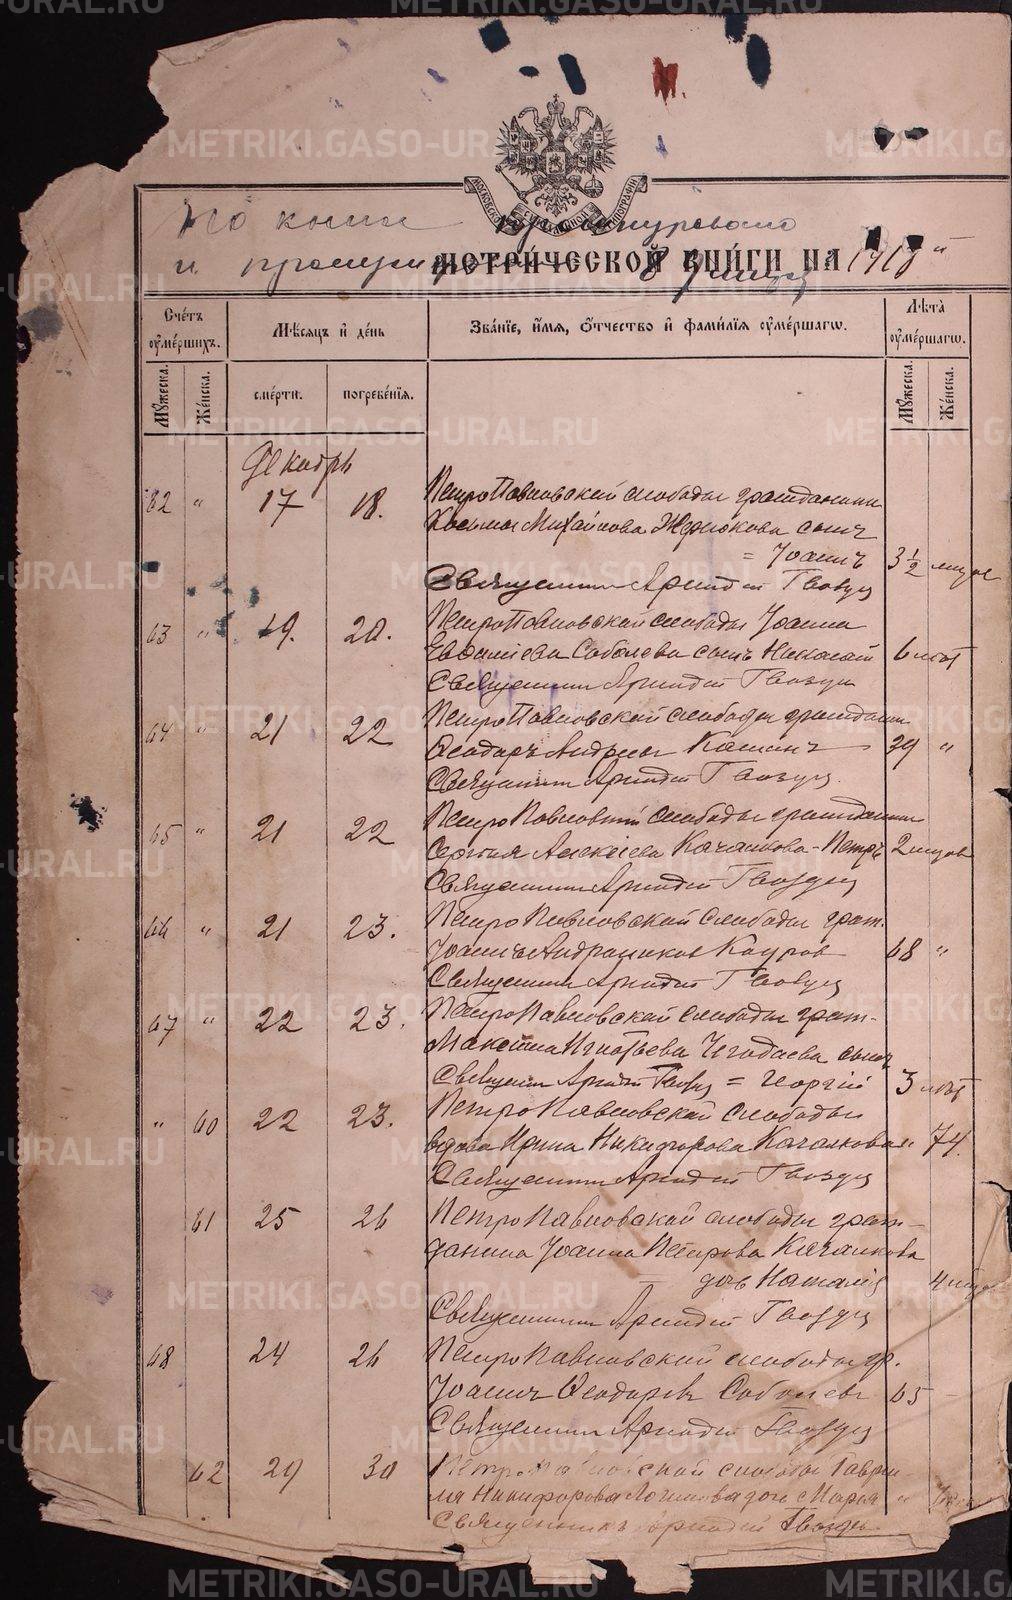 METRIKI.GASO-URAL.RU
МОСКОВСКОЙ СѴНОДАЛЬНОЙ ТИПОГРАФІИ
книге
и
МЕТРИ́ЧЕСКОЙ КНИ́ГИ НА 1918
Сче́тъ ᲂу҆ме́ршихъ.
Мѣ́сяцъ и҆ де́нь
Зва́нїе, и҆́мя, ѻ҆́тчество и҆ фами́лїя ᲂу҆ме́ршагѡ.
Лѣ́та ᲂу҆ме́ршагѡ.
Мꙋ́жеска. Же́нска. сме́рти. погребе́нїя. Мꙋ́жеска. Же́нска.
Декабрь
62 " 17 18. ПетроПавловской слободы гражданина
Косьмы Михайлова сынъ
= Іоаннъ 3½ мѣсяц
Священникъ Аркадій Гвоздец
63 " 19. 20. ПетроПавловской слободы Іоанна
Евфиміева Соболева сынъ Николай 6 лѣт
Священникъ Аркадій Гвоздец
64 " 21 22 ПетроПавловской слободы гражданин
Ѳеодоръ Андреевъ Кашинъ 39 "
Священникъ Аркадій Гвоздец.
65 " 21 22 ПетроПавловской слободы гражданина
Сергія Алексіева Качалкова - Петръ 2 мѣсяцов
Священникъ Аркадій Гвоздец
66 " 21 23. ПетроПавловской слободы граж.
Іоаннъ Андрониковъ Кауров 68 "
Священникъ Аркадій Гвоздец
67 " 22 23. ПетроПавловской слободы граж-
Максима Игнатьева Чегодаева сынъ
Священник Аркадій Гвоздец = Георгій 3 лѣт
" 60 22 23. ПетроПавловской слободы
вдова Ирина Никифорова Качалкова " 74.
Священникъ Аркадій Гвоздец
61 25 26 ПетроПавловской слободы граж-
данина Іоанна Петрова Качалкова
дочь Наталія 4
Священникъ Аркадій Гвоздец
68 24 26 ПетроПавловской слободы гр.
Іоаннъ Ѳеодоровъ Соболевъ 65 -
Священникъ Аркадій Гвоздец
62 29 30 ПетроПавловской слободы Гаври-
ла Никифорова Логинова дочь Марія "
Священникъ Аркадій Гвоздец